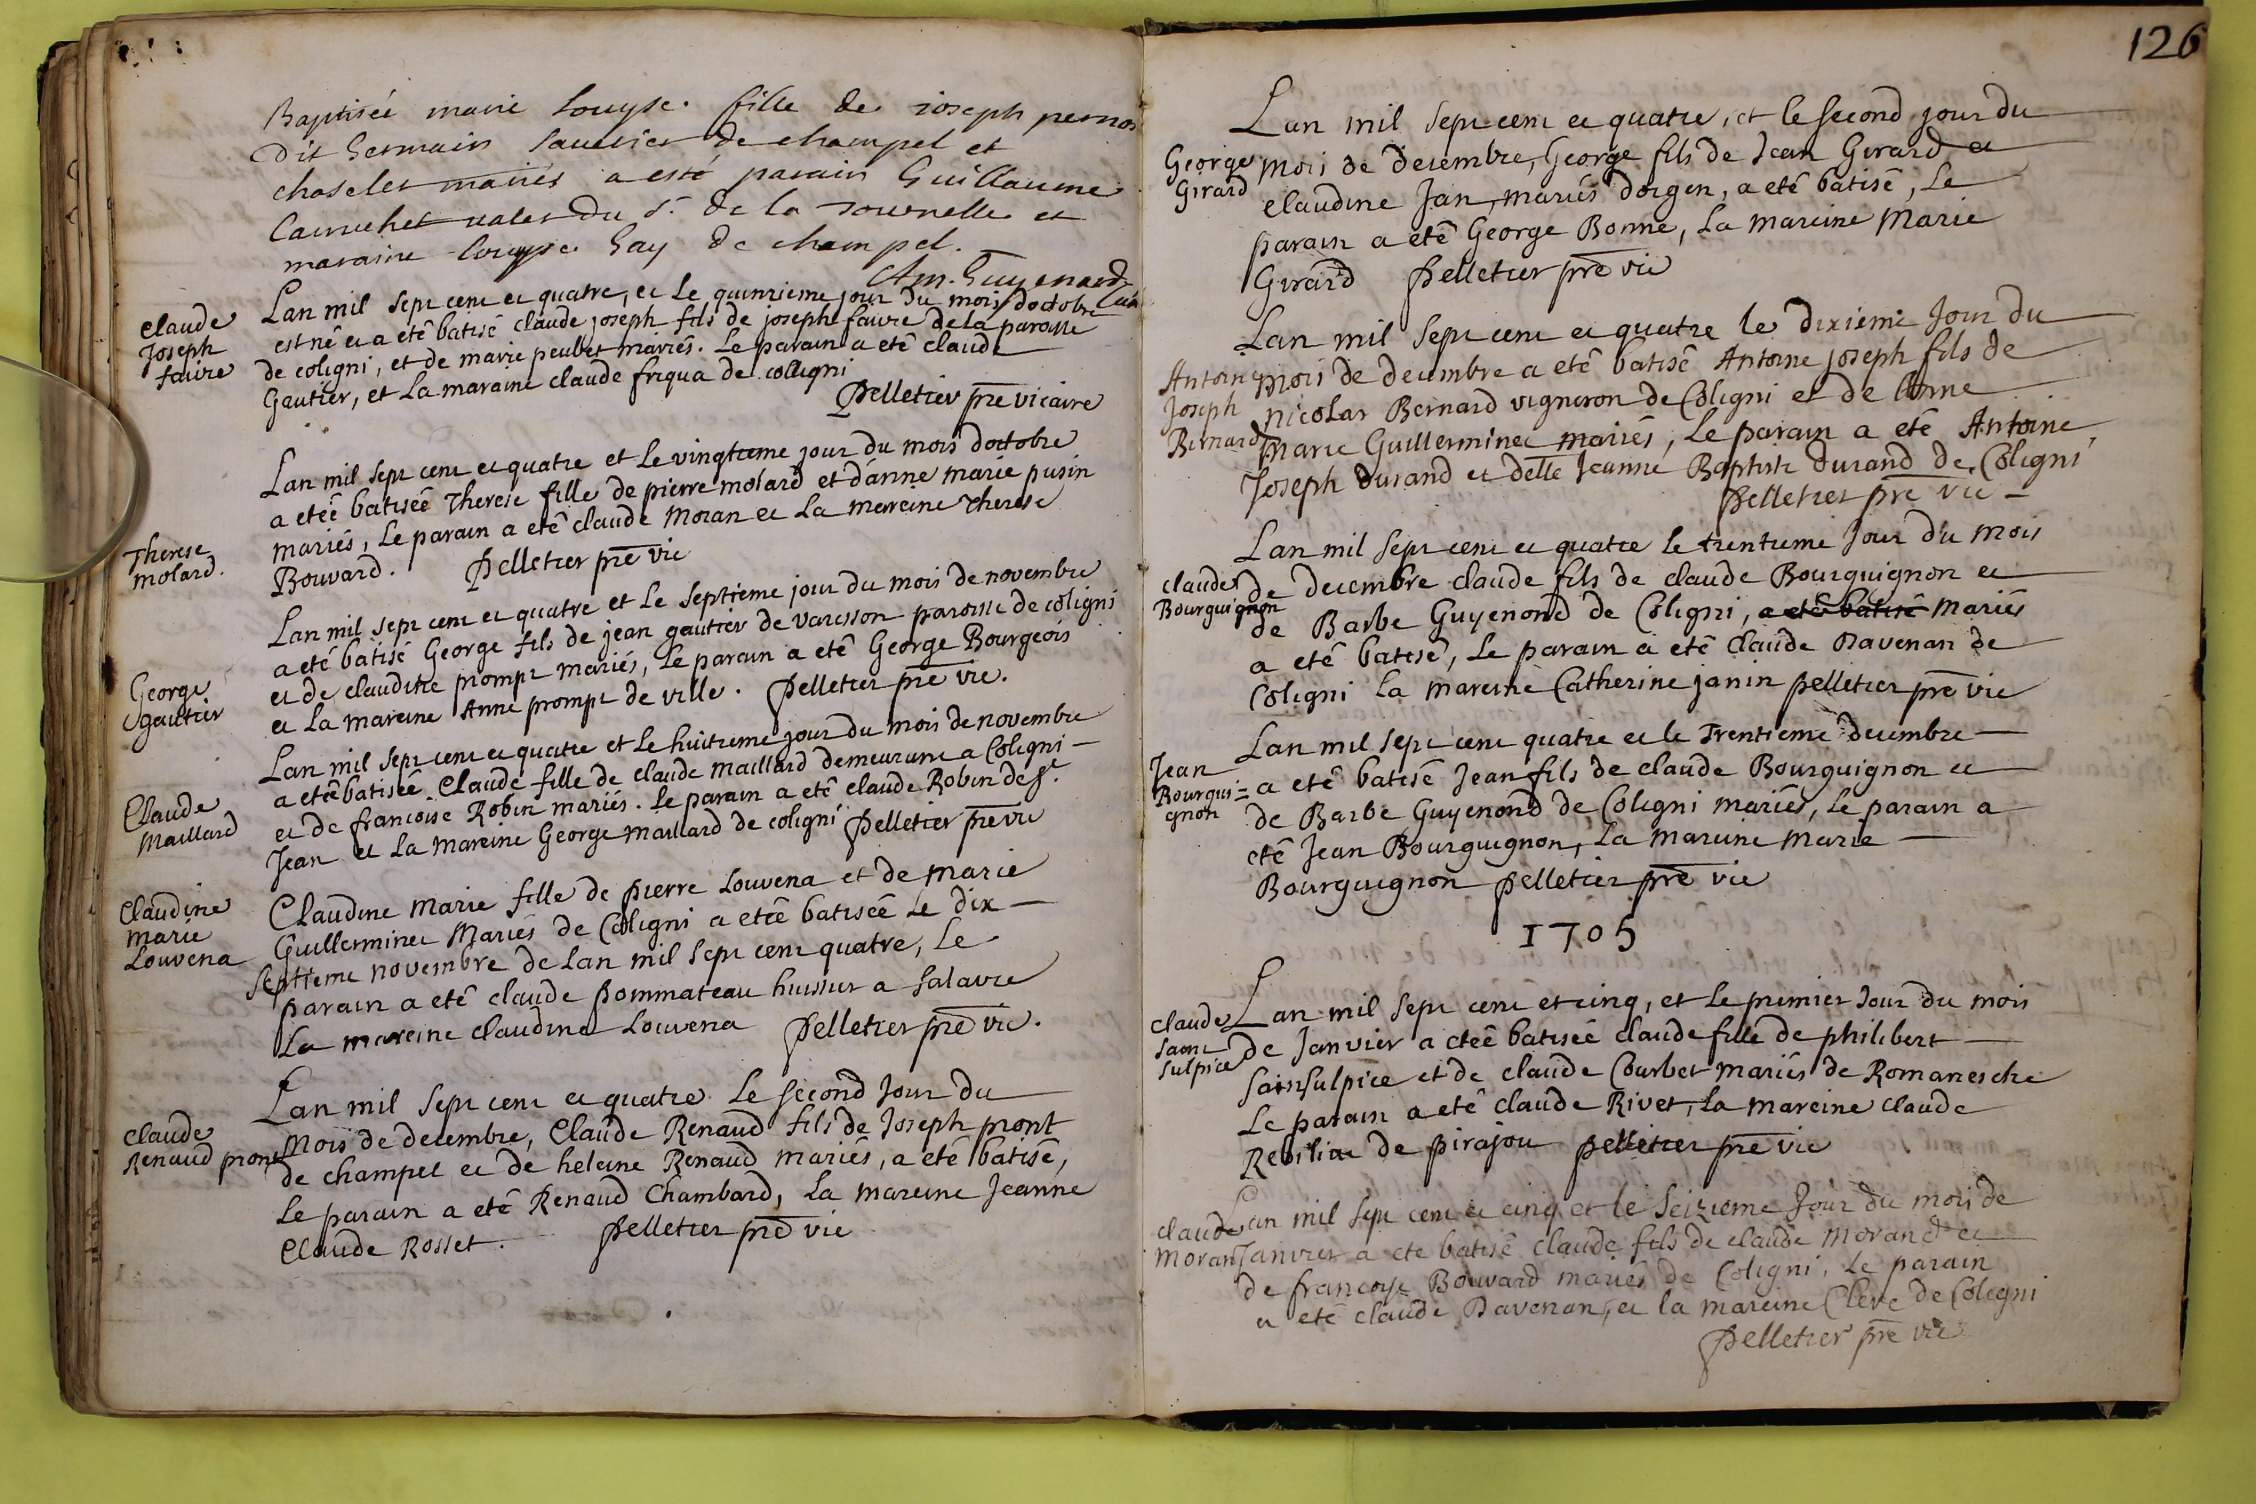 Baptisée marie Louyse. fille de ioseph pernos
dit Germain Sautier de champel et
mariés a esté parain Guillaume
valet du Sr. de la Tournelle et
maraine Louyse Gay de champel.
Am. Guyenard
Claude
Joseph
faivre
Lan mil sept cent et quatre, et Le quinzieme jour du mois doctobre
est né et a eté batisé claude joseph fils de joseph faivre de la paroisse
de coligni, et de marie peubet mariés. Le parain a eté claude
Gautier, et La maraine claude friqua de colligni
Pelletier pre vicaire
Therese
molard.
Lan mil sept cent et quatre et Le vingtieme jour du mois doctobre
a etée batisée Therese fille de pierre molard et d'anne marie pusin
mariés, Le parain a eté claude Moran et La mareine therese
Bouvard. Pelletier pre vic
George
gautier
Lan mil sept cent et quatre et Le septieme jour du mois de novembre
a eté batisé George fils de jean gautier de varesson paroisse de coligni
et de claudine prompt mariés, Le parain a eté George Bourgeois
et La mareine Anne prompt de ville. Pelletier pre vic.
Claude
Maillard
Lan mil sept cent et quatre et Le huitieme jour du mois de novembre
a etée batisée Claude fille de claude maillard demeurant a Coligni
et de francoise Robin mariés. Le parain a eté claude Robin de St.
Jean et La mareine George maillard de coligni Pelletier pre vic
Claudine
marie
Louvena
Claudine Marie fille de Pierre Louvena et de marie
Guillerminet Mariés de Coligni a etée batisée Le dix
septieme novembre de Lan mil sept cent quatre, Le
parain a eté claude pommateau huissier a salavre
La mareine claudine Louvena Pelletier pre vic.
Claude
Renaud pront
Lan mil sept cent et quatre Le second Jour du
Mois de decembre, Claude Renaud fils de Joseph pront
de champel et de heleine Renaud mariés, a eté batisé,
Le parain a eté Renaud Chambard, La mareine Jeanne
Claude Rosset. Pelletier pre vic
126
George
Girard
Lan mil sept cent et quatre, et Le second jour du
mois de decembre, George fils de Jean Girard et
claudine Jan, mariés dorgen, a eté batisé, Le
parain a eté George Bonne, La mareine Marie
Girard Pelletier pre vic
Antoine
Joseph
Bernard
Lan mil sept cent et quatre le dixieme Jour du
mois de decembre a eté batisé Antoine joseph fils de
nicolas Bernard vigneron de Coligni et de
marie Guillerminet mariés, Le parain a eté Antoine
Joseph durand et delle Jeanne Baptiste durand de Coligni
Pelletier pre vic
claude
Bourguignon
Lan mil sept cent et quatre le trentieme Jour du mois
de decembre claude fils de claude Bourguignon et
de Barbe Guyenond de Coligni, a eté batisé mariés
a eté batisé, Le parain a eté claude Davenan de
Coligni La mareine Catherine janin Pelletier pre vic
Jean
Bourgui=
gnon
Lan mil sept cent quatre et le Trentieme decembre
a eté batisé Jean fils de claude Bourguignon et
de Barbe Guyenond de Coligni mariés, Le parain a
eté Jean Bourguignon, La mareine Marie
Bourguignon Pelletier pre vic
1705
Claude
Saint
Sulpice
Lan mil sept cent et cinq, et Le premier Jour du mois
de Janvier a etée batisée claude fille de philibert
Sainsulpice et de claude Courbet mariés de Romanesche
Le parain a eté claude Rivet, La mareine claude
de Pirajou Pelletier pre vic
claude
Moran
Lan mil sept cent et cinq et le Seizieme Jour du mois de
Janvier a ete batisé claude fils de claude Morand et
de françoise Bouvard mariés de Coligni, Le parain
a eté claude Davenan, et la mareine Clere de Coligni
Pelletier pre vic